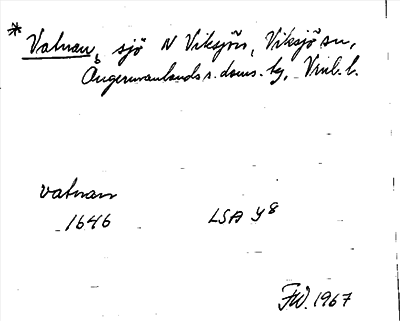 * Vatnan, sjö N Viksjön, Viksjö sn,
Ångermanlands s. doms. tg, Vnl. l.
vatnan
1646 LSA Y8
FW. 1967